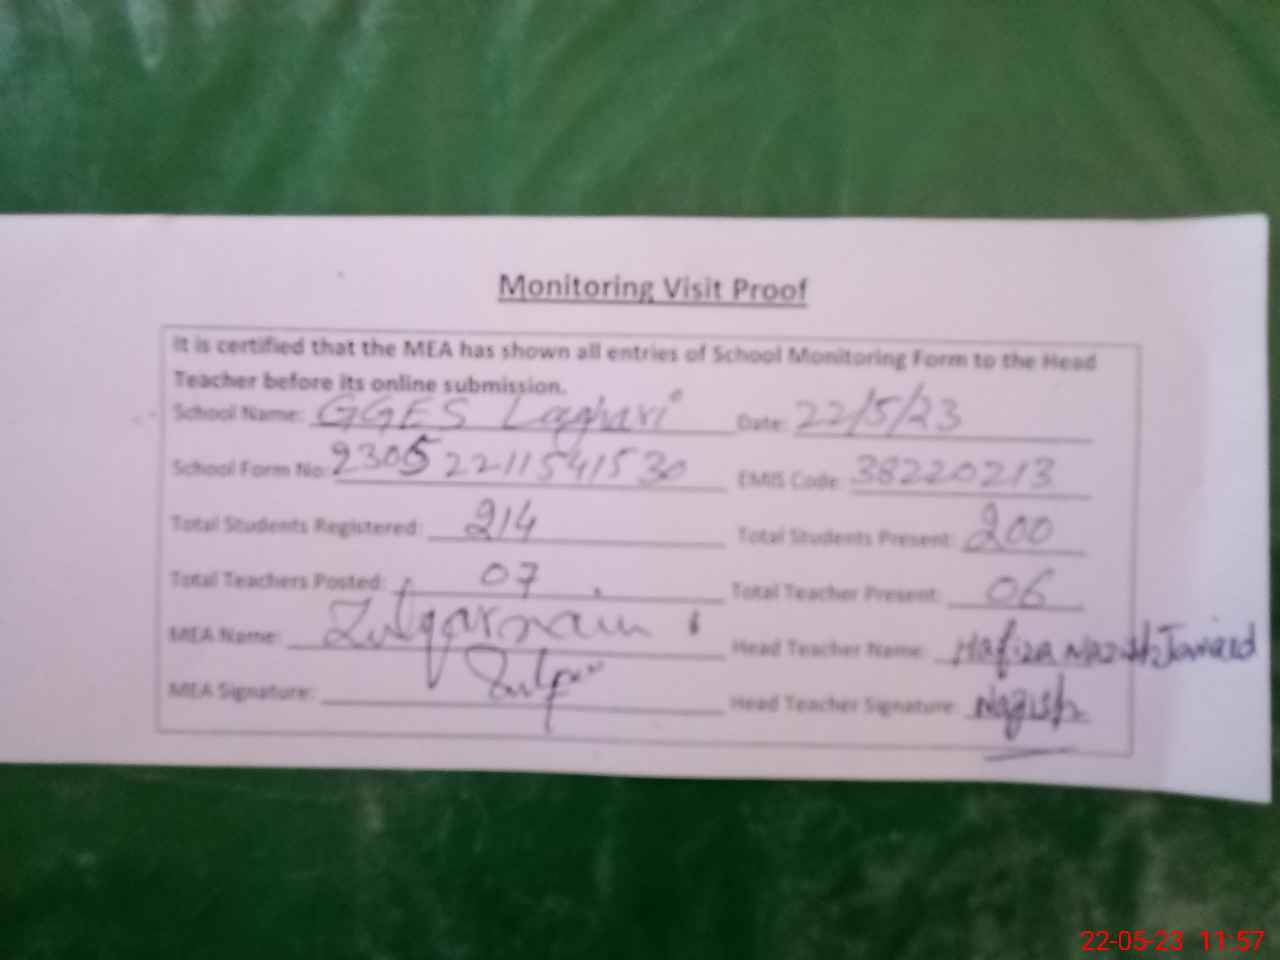 Monitoring Visit Proof
It is certified that the MEA has shown all entries of School Monitoring Form to the Head
Teacher before its online submission.
School Name: GGES Laghari Date: 22/5/23
School Form No: 23052211541530 EMIS Code: 38220213
Total Students Registered: 214 Total Students Present: 200
Total Teachers Posted: 07 Total Teacher Present: 06
MEA Name: Zulqarnain Head Teacher Name: Hafiza Nazish Javaid
MEA Signature: Head Teacher Signature: Nazish
22-05-23 11:57